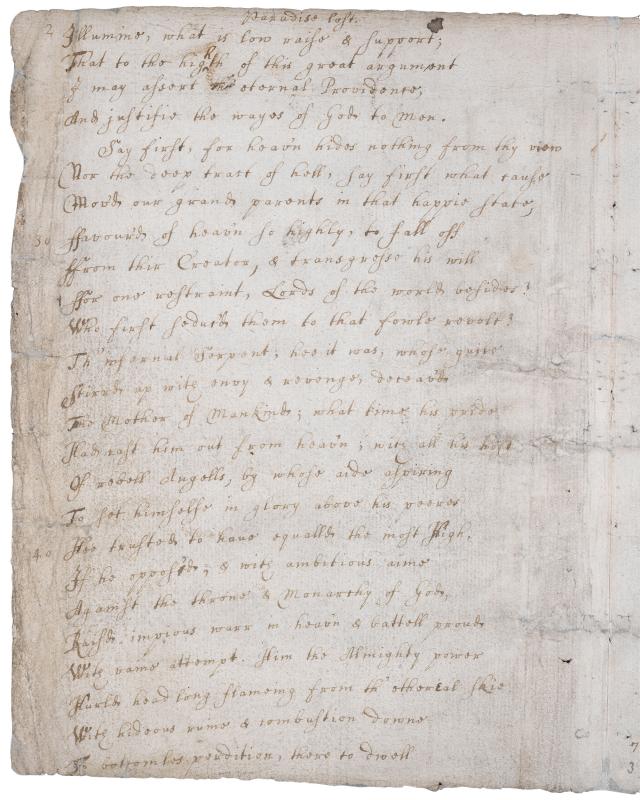 2
Paradise lost.
Illumine, what is low raise & support;
That to the highth of this great argument
I may assert eternal Providence,
And justifie the wayes of God to Men.
Say first, for heavn hides nothing from thy view
Nor the deep tract of hell, say first what cause
Mov'd our grand parents in that happie state,
30 ffavour'd of heav'n so highly, to fall off
ffrom thir Creator, & transgresse his will
ffor one restraint, Lords of the world besides?
Who first seduc'd them to that fowle revolt?
Th' infernal Serpent; hee it was, whose guile
Stirrd up with envy & revenge, deceav'd
The Mother of Mankind; what time his pride
Had cast him out from heav'n; with all his host
Of rebell Angells, by whose aide aspiring
To set himselfe in glory above his peeres
40 Hee trusted to have equall'd the most High,
If he oppos'd; & with ambitious aime
Against the throne & Monarchy of God,
Rais'd impious warr in heav'n & battell proud
With vaine attempt. Him the Almighty power
Hurld headlong flameing from th' ethereal skie
With hideous ruine & combustion downe
To bottomles perdition, there to dwell
7
3